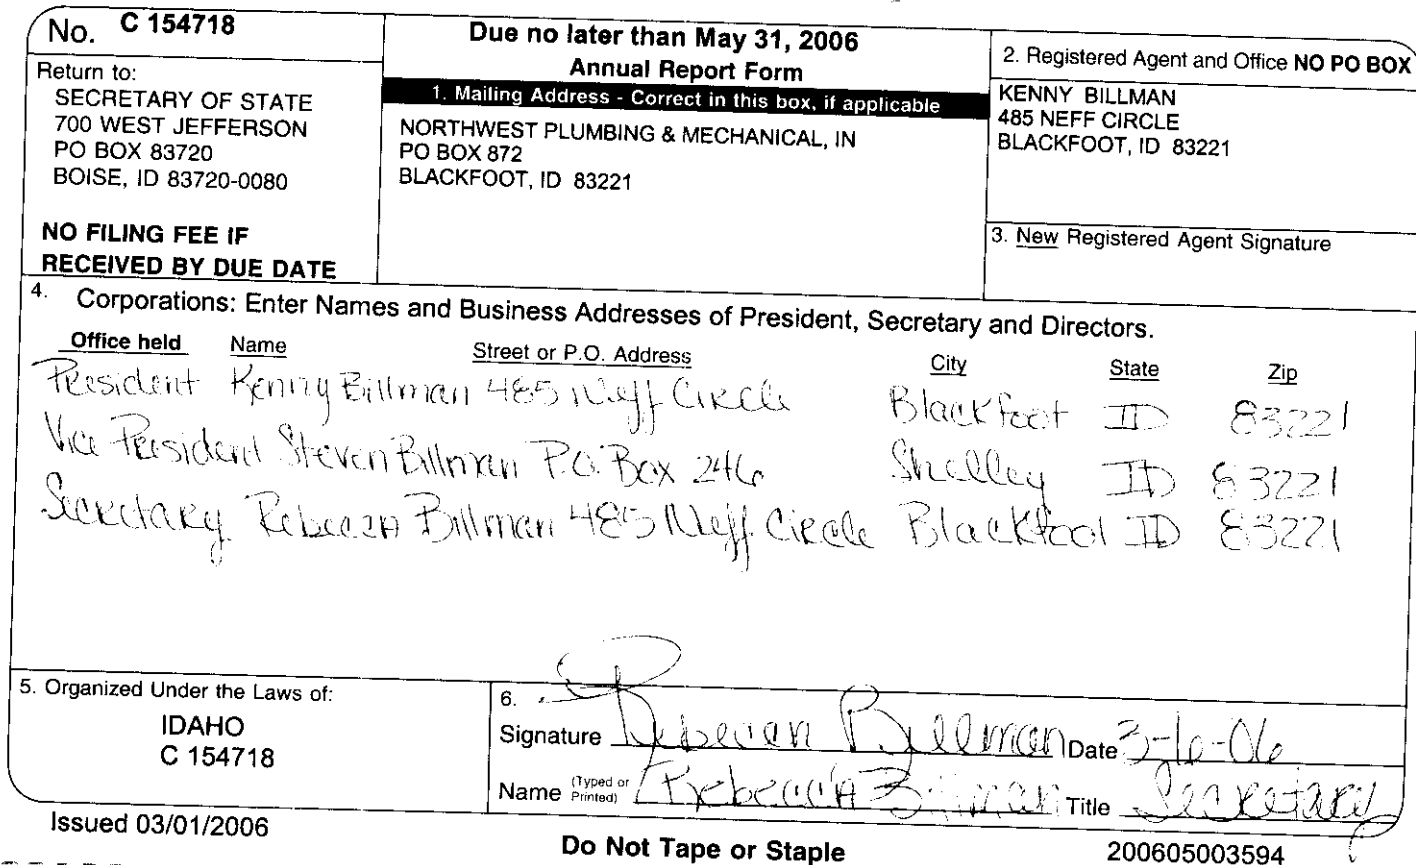 No. C 154718
Return to:
SECRETARY OF STATE
700 WEST JEFFERSON
PO BOX 83720
BOISE, ID 83720-0080
NO FILING FEE IF
RECEIVED BY DUE DATE
Due no later than May 31, 2006
Annual Report Form
1. Mailing Address - Correct in this box, if applicable
NORTHWEST PLUMBING & MECHANICAL, IN
PO BOX 872
BLACKFOOT, ID 83221
2. Registered Agent and Office NO PO BOX
KENNY BILLMAN
485 NEFF CIRCLE
BLACKFOOT, ID 83221
3. New Registered Agent Signature
4. Corporations: Enter Names and Business Addresses of President, Secretary and Directors.
Office held Name Street or P.O. Address City State Zip
President Kenny Billman 485 Neff Circle Blackfoot ID 83221
Vice President Steven Billman P.O. Box 246 Shelley ID 83221
Secretary Rebecca Billman 485 Neff Circle Blackfoot ID 83221
5. Organized Under the Laws of:
IDAHO
C 154718
6.
Signature Rebecca Billman Date 3-6-06
Name (Typed or Printed) Rebecca Billman Title Secretary
Issued 03/01/2006
Do Not Tape or Staple
200605003594